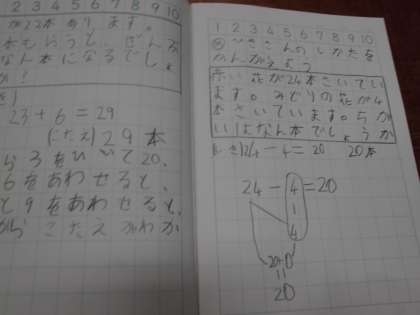 2 3 4 5 6 7 8 9 10
が23本あります。
本もらうと、ぜんぶ
なん本になるでしょ
か？
23+6=29
(こたえ)29本
ら3をひいて20、
6をあわせると、
と9をあわせると、
から こたえがわか
1 2 3 4 5 6 7 8 9 10
ひきざんのしかたを
かんがえよう
赤い花が24本さいてい
ます。みどりの花が4
本さいています。ちが
いはなん本でしょうか
(しき)24-4=20 20本
24-4=20
4
20+0
20